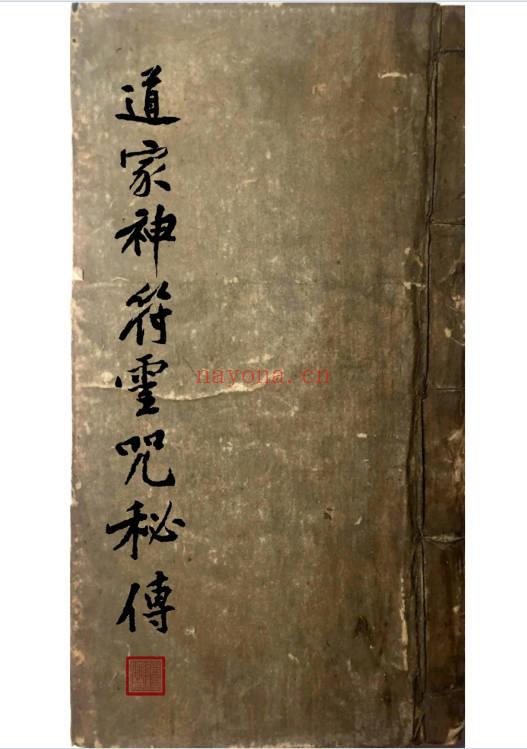 道家神符靈咒秘傳
nayona.cn